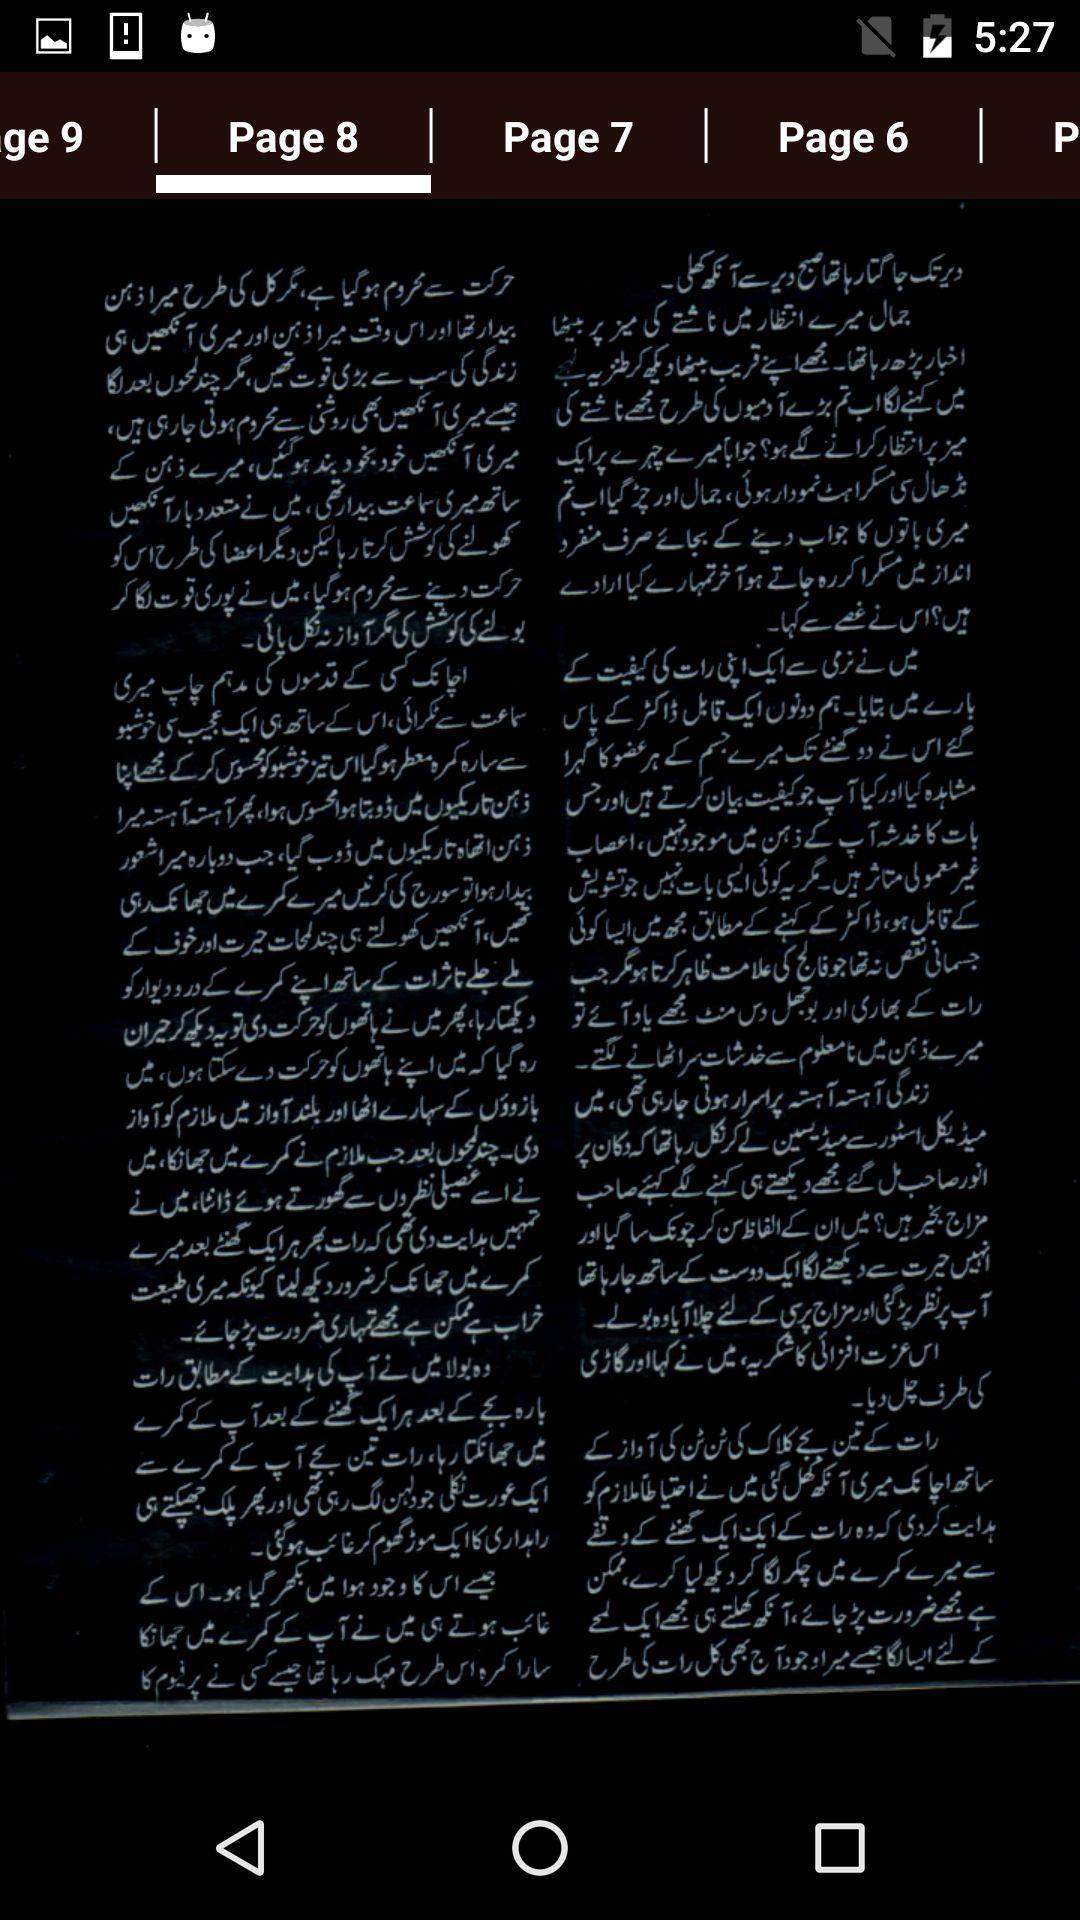 5:27
ge 9
Page 8
Page 7
Page 6
P
دیر تک جاگتا رہا تھا صبح دیر سے آنکھ کھلی۔
جمال میرے انتظار میں ناشتے کی میز پر بیٹھا
اخبار پڑھ رہا تھا۔ مجھے اپنے قریب بیٹھا دیکھ کر طنزیہ لہجے
میں کہنے لگا اب تم بڑے آدمیوں کی طرح مجھے ناشتے کی
میز پر انتظار کرانے لگے ہو؟ جواباً میرے چہرے پر ایک
نڈھال سی مسکراہٹ نمودار ہوئی، جمال اور چڑ گیا اب تم
میری باتوں کا جواب دینے کے بجائے صرف منفرد
انداز میں مسکرا کر رہ جاتے ہو آخر تمہارے کیا ارادے
ہیں؟ اس نے غصے سے کہا۔
میں نے نرمی سے ایک اپنی رات کی کیفیت کے
بارے میں بتایا۔ ہم دونوں ایک قابل ڈاکٹر کے پاس
گئے اس نے دو گھنٹے تک میرے جسم کے ہر عضو کا گہرا
مشاہدہ کیا اور کیا آپ جو کیفیت بیان کرتے ہیں اور جس
بات کا خدشہ آپ کے ذہن میں موجود نہیں، اعصاب
غیر معمولی متاثر ہیں۔ مگر یہ کوئی ایسی بات نہیں جو تشویش
کے قابل ہو، ڈاکٹر کے کہنے کے مطابق مجھ میں ایسا کوئی
جسمانی نقص نہ تھا جو فالج کی علامت ظاہر کرتا ہو مگر جب
رات کے بھاری اور بوجھل دس منٹ مجھے یاد آئے تو
میرے ذہن میں نامعلوم سے خدشات سر اٹھانے لگتے۔
زندگی آہستہ آہستہ پراسرار ہوتی جا رہی تھی، میں
میڈیکل اسٹور سے میڈیسین لے کر نکل رہا تھا کہ دکان پر
انور صاحب مل گئے مجھے دیکھتے ہی کہنے لگے کہئے صاحب
مزاج بخیر ہیں؟ میں ان کے الفاظ سن کر چونک سا گیا اور
انہیں حیرت سے دیکھنے لگا ایک دوست کے ساتھ جا رہا تھا
آپ پر نظر پڑ گئی اور مزاج پرسی کے لئے چلا آیا وہ بولے۔
اس عزت افزائی کا شکریہ، میں نے کہا اور گاڑی
کی طرف چل دیا۔
رات کے تین بجے کلاک کی ٹن ٹن کی آواز کے
ساتھ اچانک میری آنکھ کھل گئی میں نے احتیاطاً ملازم کو
ہدایت کر دی کہ وہ رات کے ایک ایک گھنٹے کے وقفے
سے میرے کمرے میں چکر لگا کر دیکھ لیا کرے، ممکن
ہے مجھے ضرورت پڑ جائے، آنکھ کھلتے ہی مجھے ایک لمحے
کے لئے ایسا لگا جیسے میرا وجود آج بھی کل رات کی طرح
حرکت سے محروم ہو گیا ہے، مگر کل کی طرح میرا ذہن
بیدار تھا اور اس وقت میرا ذہن اور میری آنکھیں ہی
زندگی کی سب سے بڑی قوت تھیں، مگر چند لمحوں بعد لگا
جیسے میری آنکھیں بھی روشنی سے محروم ہوتی جا رہی ہیں،
میری آنکھیں خود بخود بند ہو گئیں، میرے ذہن کے
ساتھ میری سماعت بیدار تھی، میں نے متعدد بار آنکھیں
کھولنے کی کوشش کرتا رہا لیکن دیگر اعضا کی طرح اس کو
حرکت دینے سے محروم ہو گیا، میں نے پوری قوت لگا کر
بولنے کی کوشش کی مگر آواز نہ نکل پائی۔
اچانک کسی کے قدموں کی مدہم چاپ میری
سماعت سے ٹکرائی، اس کے ساتھ ہی ایک عجیب سی خوشبو
سے سارہ کمرہ معطر ہو گیا اس تیز خوشبو کو محسوس کر کے مجھے اپنا
ذہن تاریکیوں میں ڈوبتا ہوا محسوس ہوا، پھر آہستہ آہستہ میرا
ذہن اتھاہ تاریکیوں میں ڈوب گیا، جب دوبارہ میرا شعور
بیدار ہوا تو سورج کی کرنیں میرے کمرے میں جھانک رہی
تھیں، آنکھیں کھولتے ہی چند لمحات حیرت اور خوف کے
ملے جلے تاثرات کے ساتھ اپنے کمرے کے در و دیوار کو
دیکھتا رہا، پھر میں نے ہاتھوں کو حرکت دی تو یہ دیکھ کر حیران
رہ گیا کہ میں اپنے ہاتھوں کو حرکت دے سکتا ہوں، میں
بازوؤں کے سہارے اٹھا اور بلند آواز میں ملازم کو آواز
دی۔ چند لمحوں بعد جب ملازم نے کمرے میں جھانکا، میں
نے اسے غصیلی نظروں سے گھورتے ہوئے ڈانٹا، میں نے
تمہیں ہدایت دی تھی کہ رات بھر ہر ایک گھنٹے بعد میرے
کمرے میں جھانک کر ضرور دیکھ لینا کیونکہ میری طبیعت
خراب ہے ممکن ہے مجھے تمہاری ضرورت پڑ جائے۔
وہ بولا میں نے آپ کی ہدایت کے مطابق رات
بارہ بجے کے بعد ہر ایک گھنٹے کے بعد آپ کے کمرے
میں جھانکتا رہا، رات تین بجے آپ کے کمرے سے
ایک عورت نکلی جو دلہن لگ رہی تھی اور پھر پلک جھپکتے ہی
راہداری کا ایک موڑ گھوم کر غائب ہو گئی۔
جیسے اس کا وجود ہوا میں بکھر گیا ہو۔ اس کے
غائب ہوتے ہی میں نے آپ کے کمرے میں جھانکا
سارا کمرہ اس طرح مہک رہا تھا جیسے کسی نے پرفیوم کا